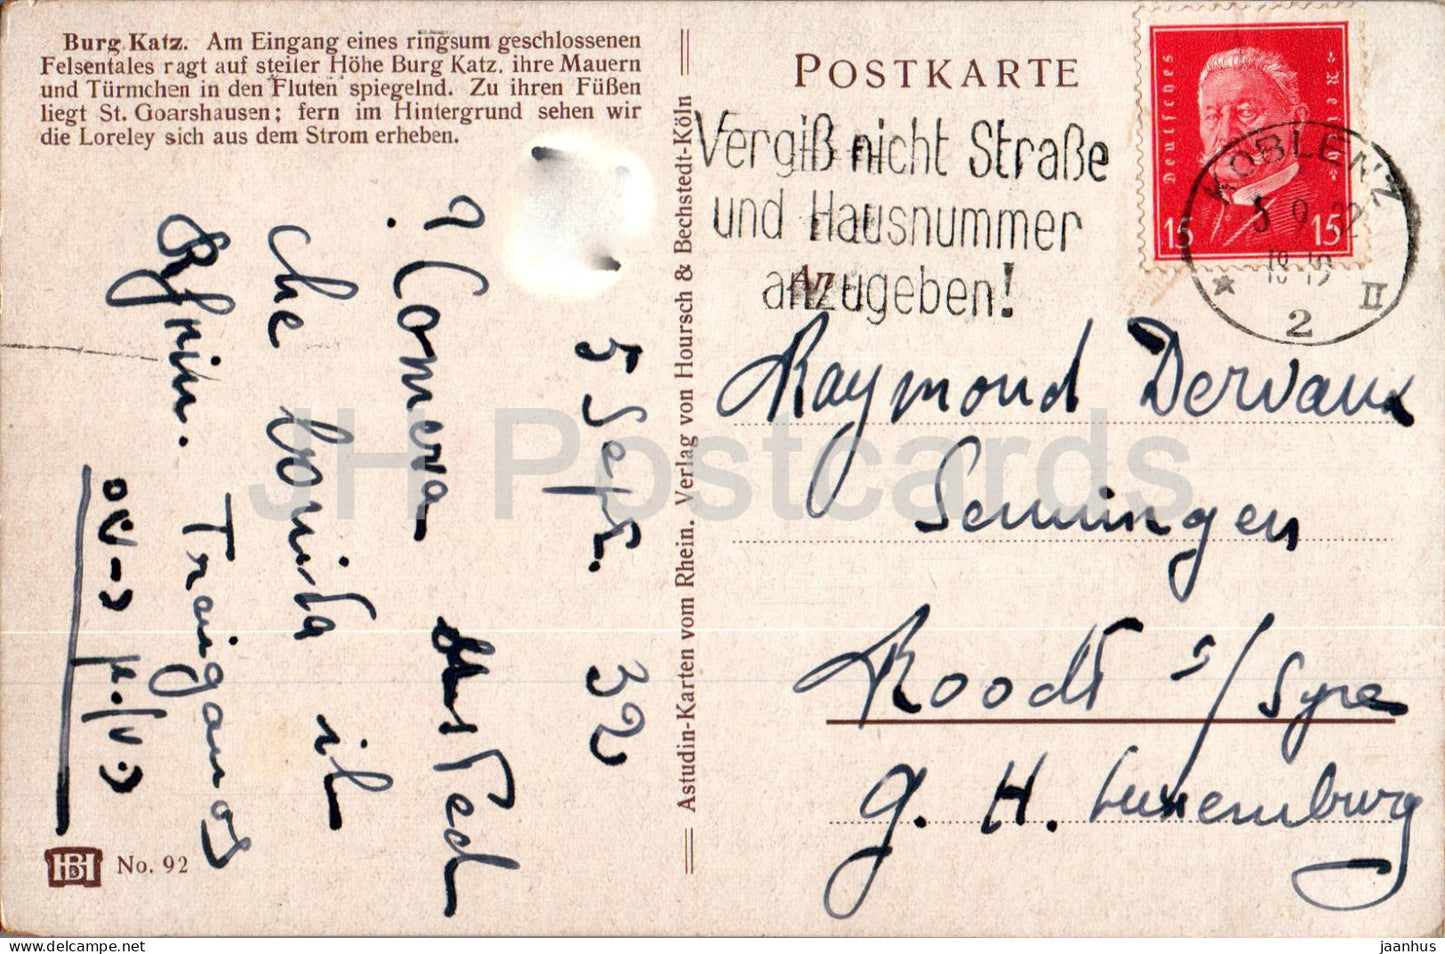 Burg Katz. Am Eingang eines ringsum geschlossenen
Felsentales ragt auf steiler Höhe Burg Katz, ihre Mauern
und Türmchen in den Fluten spiegelnd. Zu ihren Füßen
liegt St. Goarshausen; fern im Hintergrund sehen wir
die Loreley sich aus dem Strom erheben.
POSTKARTE
Deutsches Reich
15 15
Vergiß nicht Straße
und Hausnummer
anzugeben!
KOBLENZ
2 II
An
Raymond Dervaux
Senningen
Roodt s/Syre
G. H. Luxemburg
5 Sept. 32
che bonita il
Rhein.
Astudin-Karten vom Rhein. Verlag von Hoursch & Bechstedt-Köln
HB No. 92
JH Postcards
delcampe.net
jaanhus